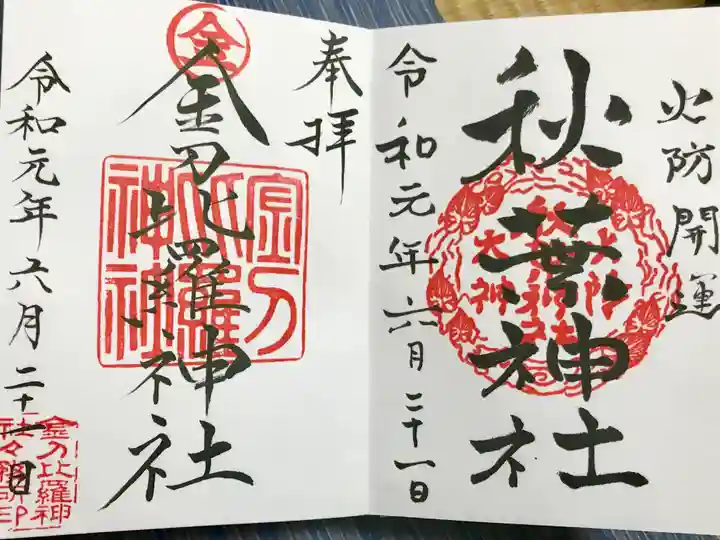 火防開運
秋葉神社
令和元年六月二十一日
奉拝
金刀比羅神社
令和元年六月二十一日
金
金刀比羅神社
金刀比羅神
社々務所印